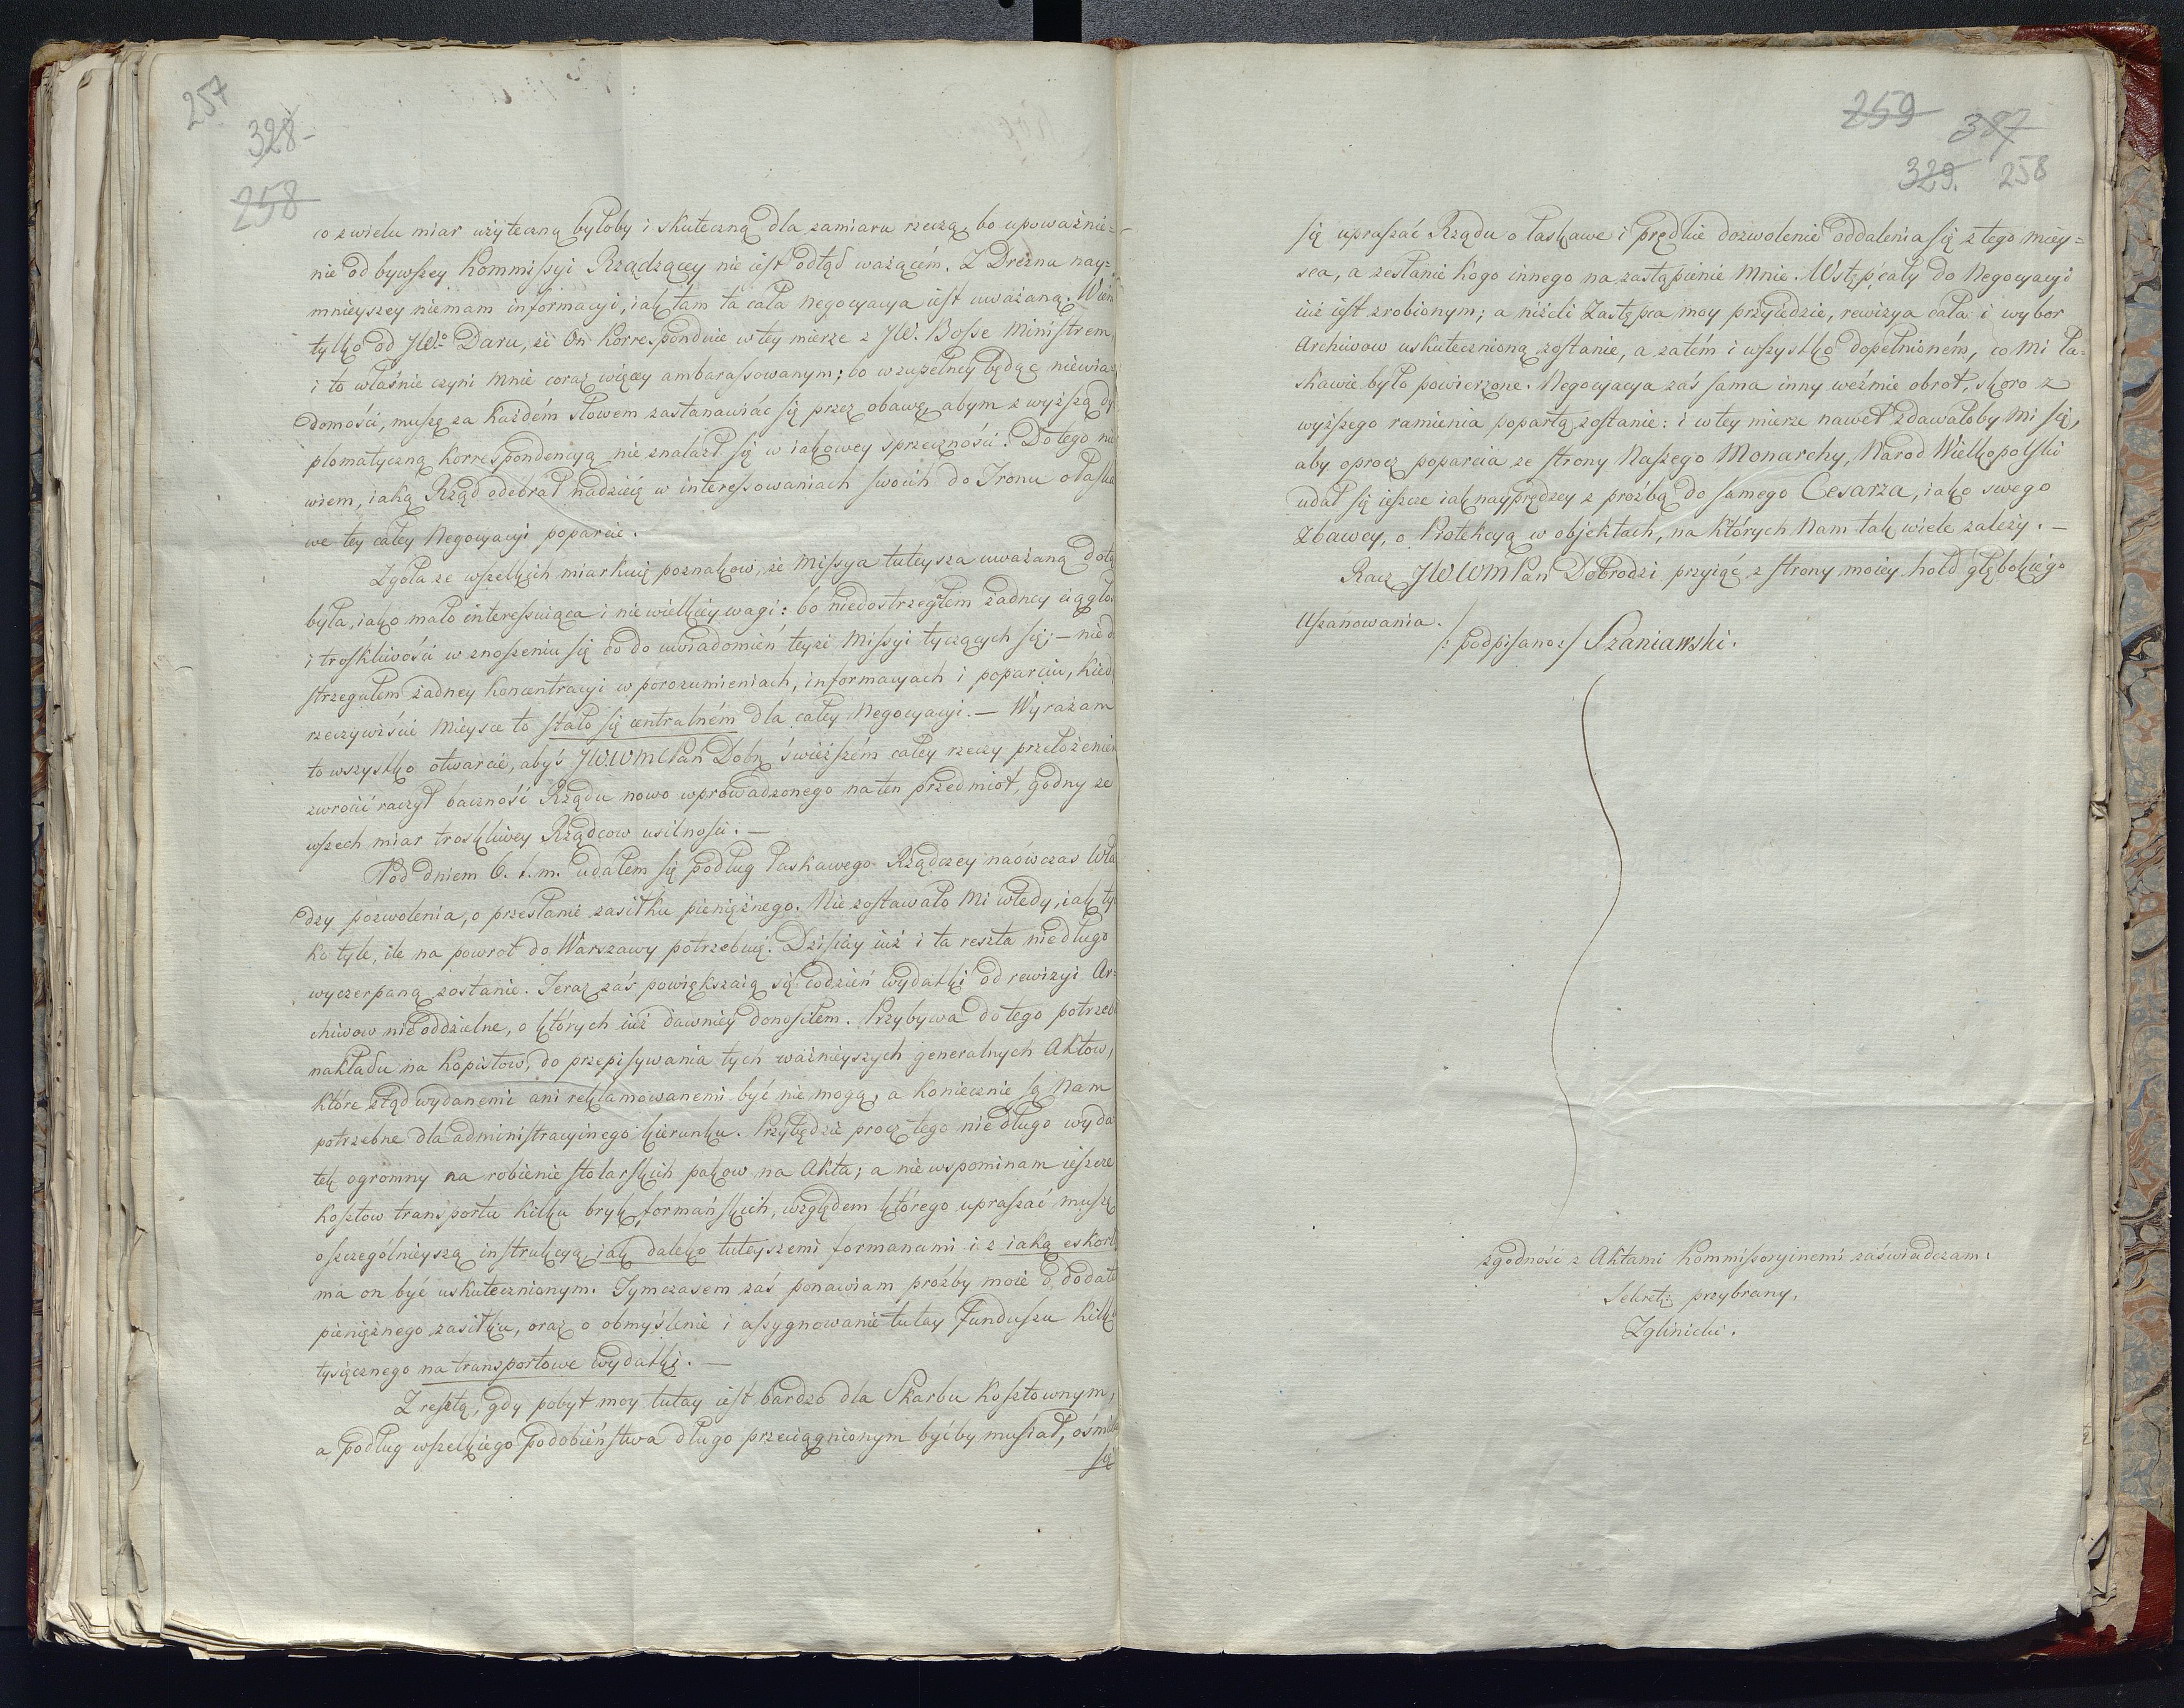 257
328
258
co z wielu miar użyteczną byłoby i skuteczną dla zamiaru rzeczą, bo upoważnie=
nie od bywszey Kommissyi Rządzącey nie iest odtąd ważącém. Z Drezna nay=
mnieyszey niemam informacyi, iak tam ta cała negocyacya iest uważaną. Wiem
tylko od JW.o Daru, że On korresponduie w tey mierze z JW. Bosse Ministrem
i to właśnie czyni mnie coraz więcey ambarassowanym; bo w zupełney będąc niewia=
domości, muszę za każdém słowem zastanawiać się przez obawę, abym z wyższą dy
plomatyczną korrespondencyą nie znalazł się w iakowey sprzeczności. Do tego nie
wiem, iaką Rząd odebrał nadzieię w interessowaniach swoich do Tronu o łaska
we tey całey Negocyacyi poparcie.
Zgoła ze wszelkich miarkuię poznakow, że Missya tuteysza uważaną dotą
była, iako mało interessuiąca i nie wielkiey wagi: bo niedostrzegłem żadney ciągło
i troskliwości w znoszeniu się co do uwiadomień teyże Missyi tyczących się; — nie d
strzegałem żadney koncentracyi w porozumieniach, informacyach i poparciu, kied
rzeczywiście mieysce to stało się centralném dla całey Negocyacyi. — Wyrażam
to wszystko otwarcie, abyś JWWMPan Dobr. świeższém całey rzeczy przełożenie
zwrócić raczył baczność Rządu nowo wprowadzonego na ten przedmiot, godny ze
wszech miar troskliwey Rządcow usilności. —
Pod dniem 6. t. m. udałem się podług łaskawego Rządczey naówczas Wła
dzy pozwolenia, o przesłanie zasiłku pieniężnego. Nie zostawało mi wtedy, iak ty
ko tyle, ile na powrot do Warszawy potrzebuię. Dzisiay iuż i ta reszta niedługo
wyczerpaną zostanie. Teraz zaś powiększaią się codzień wydatki od rewizyi Ar=
chiwow nieoddzielne, o których iuż dawniey donosiłem. Przybywa do tego potrzeb
nakładu na Kopistow, do przepisywania tych ważnieyszych generalnych Aktow,
które ztąd wydanemi ani reklamowanemi być nie mogą, a koniecznie są Nam
potrzebne dla administracyinego kierunku. Przybędzie procz tego nie długo wyda
tek ogromny na robienie stolarskich pakow na Akta; a nie wspominam ieszcze
kosztow transportu kilku bryk formańskich, względem którego upraszać muszę
o szczególnieyszą instrukcyą, iak daleko tuteyszemi formanami i z iaką eskort
ma on być uskutecznionym. Tymczasem zaś ponawiam proźby moie o dodate
pieniężnego zasiłku, oraz o obmyślenie i assygnowanie tutay funduszu kilk
tysięcznego na transportowe wydatki. —
Z resztą, gdy pobyt moy tutay iest bardzo dla Skarbu kosztownym,
a podług wszelkiego podobieństwa długo przeciągnionym byćby musiał, ośmiel
się
259 387
329. 258
się upraszać Rządu o łaskawe i prędkie dozwolenie oddalenia się z tego miey=
sca, a zesłanie kogo innego na zastąpienie mnie. Wstęp cały do Negocyacyi
iuż iest zrobionym; a niżeli Zastępca moy przyiedzie, rewizya cała i wybor
Archiwow uskutecznioną zostanie, a zatém i wszystko dopełnioném, co mi ła=
skawie było powierzone. Negocyacya zaś sama inny weźmie obrot, skoro z
wyższego ramienia popartą zostanie: i w tey mierze nawet zdawałoby mi się,
aby oprocz poparcia ze strony Naszego Monarchy, Narod Wielkopolski
udał się ieszcze iak nayprędzey z proźbą do samego Cesarza, iako swego
Zbawcy, o Protekcyą w obiektach, na których Nam tak wiele zależy. —
Racz JWWMPan Dobrodzi przyiąć z strony moiey hołd głębokiego
Uszanowania.
/: podpisano :/ Szaniawski.
zgodność z Aktami Kommissoryinemi zaświadczam:
Sekretz. przybrany,
Zglinicki.